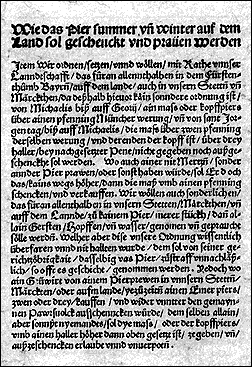 Wie das Pier summer vñ winter auf dem
Land sol geschenckt vnd prauen werden
Item Wir ordnen/setzen/vnnd wöllen/mit Rathe vnnser
Lanndtschafft/das füran allennthalben in dem Fürsten-
thůmb Bayrñ/auff dem lande/auch in vnsern Stettñ vñ
Märckthen/da deßhalb hieuor kain sonndere ordnung ist/
von Michaelis biß auff Georij/ain mass oder kopffpiers
über ainen pfenning Müncher werung/vñ von sant Jor-
gen tag/biß auff Michaelis/die mass über zwen pfenning
derselben werung/vnd derenden der kopff ist/über drey
haller/bey nachgesetzter Pene/nicht gegeben noch außge-
schenckht sol werden. Wo auch ainer nit Mertzñ/sonder
annder Pier prawen/oder sonst haben würde/sol Er doch
das/kains wegs höher/dann die maß vmb ainen pfenning
schencken/vnd verkauffen. Wir wöllen auch sonderlichen/
das füran allenthalben in vnsern Stetten/Märckthen/vñ
auff dem Lannde/zů kainem Pier/merer stückh/dañ al-
lain Gersten/Hopffen/vñ wasser/genomen vñ gepraucht
sölle werdñ. Welher aber dise vnsere Ordnung wissentlich
überfaren vnnd nit hallten wurde/dem sol von seiner ge-
richtzöbrigkait/dasselbig vas Pier/zůstraff vnnachläß-
lich/so offt es geschicht/genommen werden. Jedoch wo
ain Gůwirt von ainem Pierprewen in vnnsern Stettñ/
Märckten/oder aufm lande/yezůzeitñ ainen Emer piers/
zwen oder drey/kauffen/vnd wider vnntter den gemay-
nen Pawrsuolck ausschencken würde/dem selben allain/
aber sonnst nyemandts/sol dye mass/oder der kopffpiers/
vmb ainen haller höher dann oben gesetzt ist/ze geben/vñ
außzeschencken erlaubt vnnd vnuerpotñ.